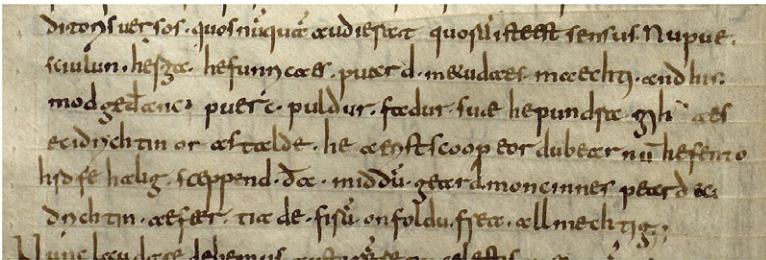 ditoris uersos. quos nūquā audierat quorū iste est sensus. Nu pue.
sciulun. hergæ. hefunricæs. puard. metudæs. mæchti. and his.
modgedanc. puerc. puldur. fadur. suæ hepundra. gihuæs
eci drichtin or astalde. he ærist scoop eordu bearnū hefento
hrofe halig. sceppend. da. middū. geard. moncinnes peard eci
drichtin. æfter. tiade. firū. onfoldu. frea. allmechtig;
Nunc laudare debemus